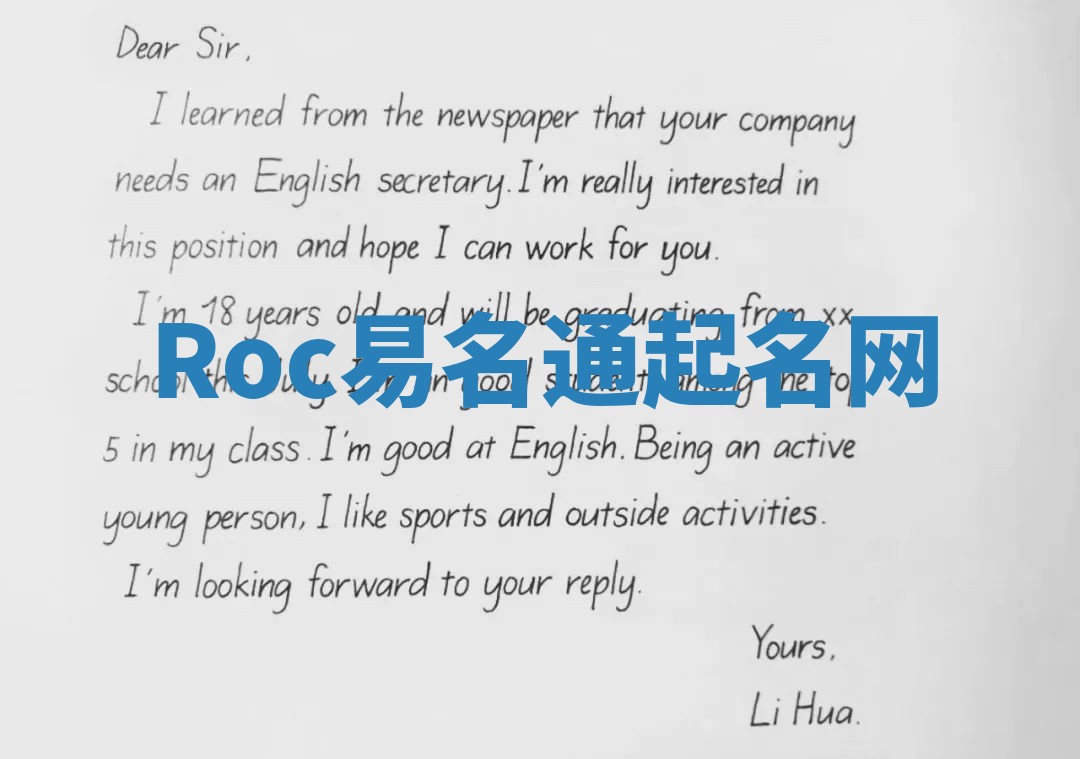 Dear Sir,
I learned from the newspaper that your company
needs an English secretary. I'm really interested in
this position and hope I can work for you.
I'm 18 years old and will be graduating from xx
Roc易名通起名网
school this July. I'm good student among the top
5 in my class. I'm good at English. Being an active
young person, I like sports and outside activities.
I'm looking forward to your reply.
Yours,
Li Hua.